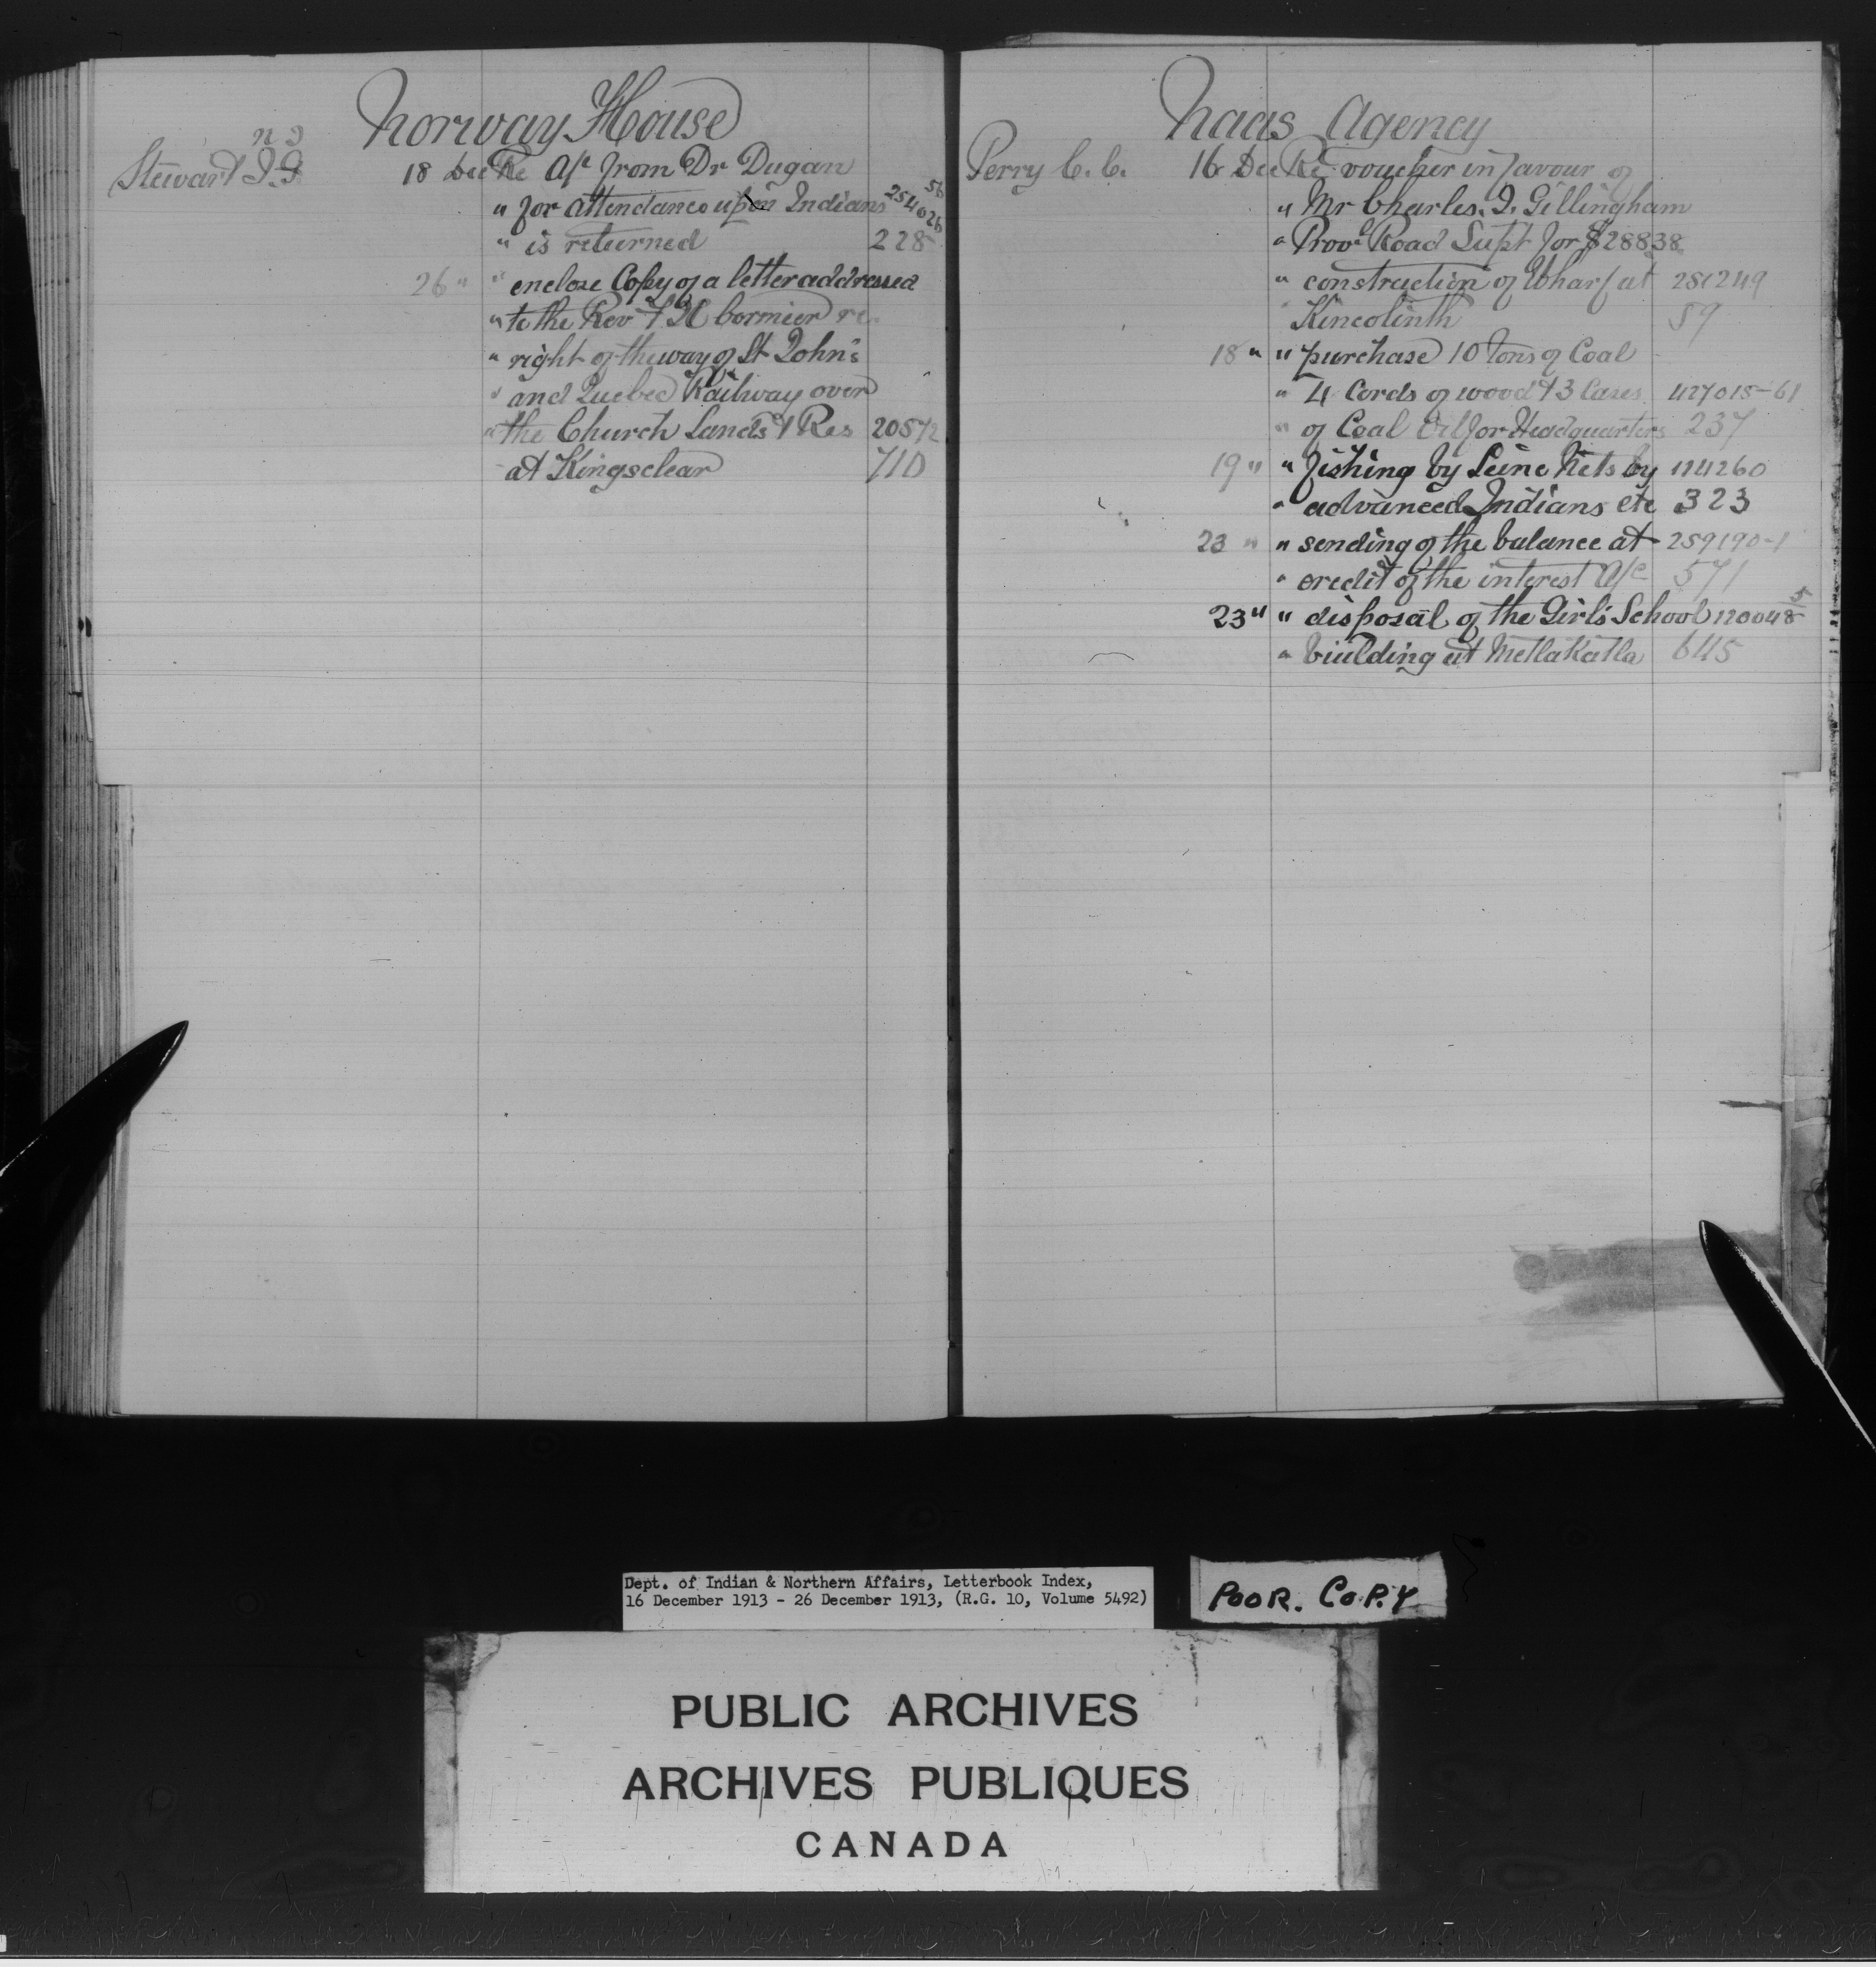 Norway House
Stewart J. G
18 Dec Re A/c from Dr Dugan
" for attendance upon Indians 254026 56
" is returned 228
26 " " enclose Copy of a letter addressed
" to the Rev F H Cormier re
" right of the way of St John's
" and Quebec Railway over
" the Church Lands & Res 20572
at Kingsclear 710
Naas Agency
Perry C. C. 16 Dec Re voucher in favour of
" Mr Charles. J. Gillingham
" Provl Road Supt for $28838
" construction of Wharf at 281249
" Kincolinth 59
18 " " purchase 10 Tons of Coal
" 4 Cords of wood & 3 Cases 427015-61
" of Coal Oil for Headquarters 237
19 " " fishing by Seine Nets by 124260
" advanced Indians etc 323
23 " " sending of the balance at 259190-1
" credit of the interest A/c 571
23 " " disposal of the Girl's School 120048 5
" building at Metlakatla 645
Dept. of Indian & Northern Affairs, Letterbook Index,
16 December 1913 - 26 December 1913, (R.G. 10, Volume 5492)
POOR. COPY
PUBLIC ARCHIVES
ARCHIVES PUBLIQUES
CANADA